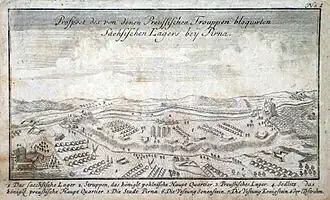 No. 1
Prospect des von denen Preussischen Trouppen bloquirten
Sächsischen Lagers bey Pirna.
1 Das saechsische Lager 2. Struppen, das königl pohlnische Haupt Quartier 3 Preussisches Lager. 4. Sedlitz das
königl preussische Haupt Quartier. 5. Die Stadt Pirna. 6. Die Vestung Sonnenstein. 7. Die Vestung Königstein. 8 der